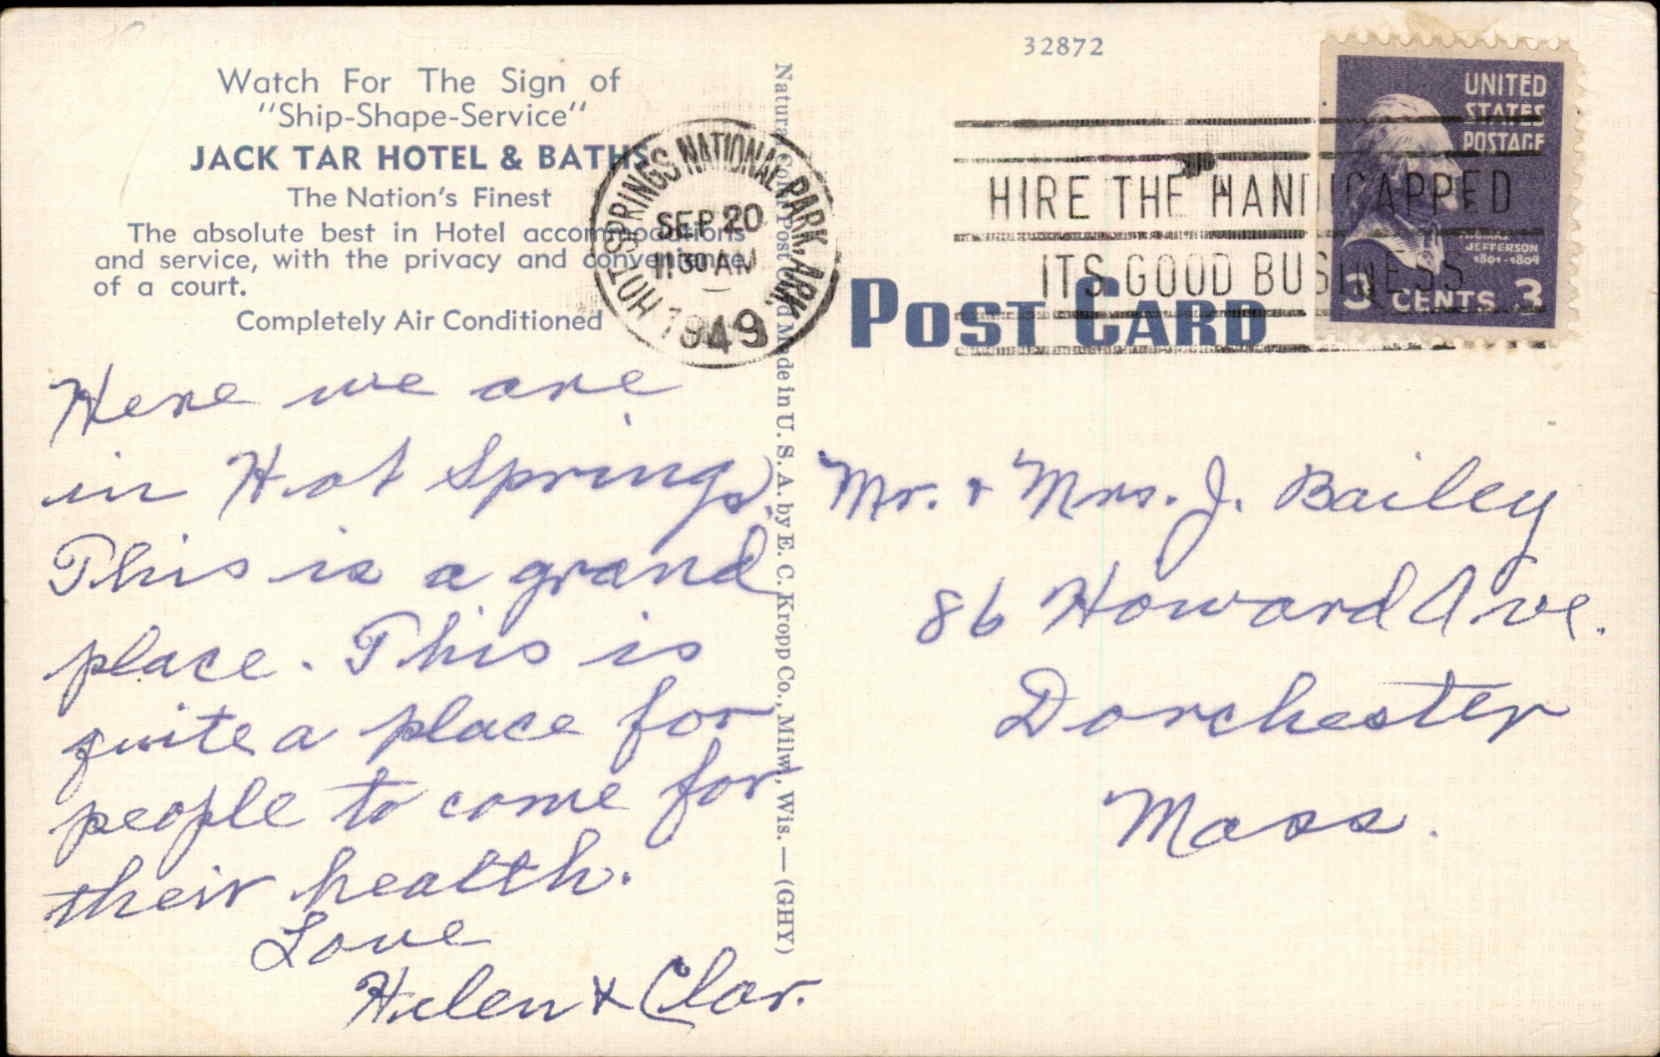 Watch For The Sign of
"Ship-Shape-Service"
JACK TAR HOTEL & BATHS
The Nation's Finest
The absolute best in Hotel accommodations
and service, with the privacy and convenience
of a court.
Completely Air Conditioned
Here we are
in Hot Springs.
This is a grand
place. This is
quite a place for
people to come for
their health.
Love
Helen & Clar.
HOT SPRINGS NATIONAL PARK, ARK.
SEP 20
11 30 AM
1949
Natural Color Post Card Made in U. S. A. by E. C. Kropp Co., Milw., Wis. — (GHY)
32872
HIRE THE HANDICAPPED
ITS GOOD BUSINESS
UNITED
STATES
POSTAGE
JEFFERSON
1801-1809
3 CENTS 3
POST CARD
Mr. & Mrs. J. Bailey
86 Howard Ave.
Dorchester
Mass.